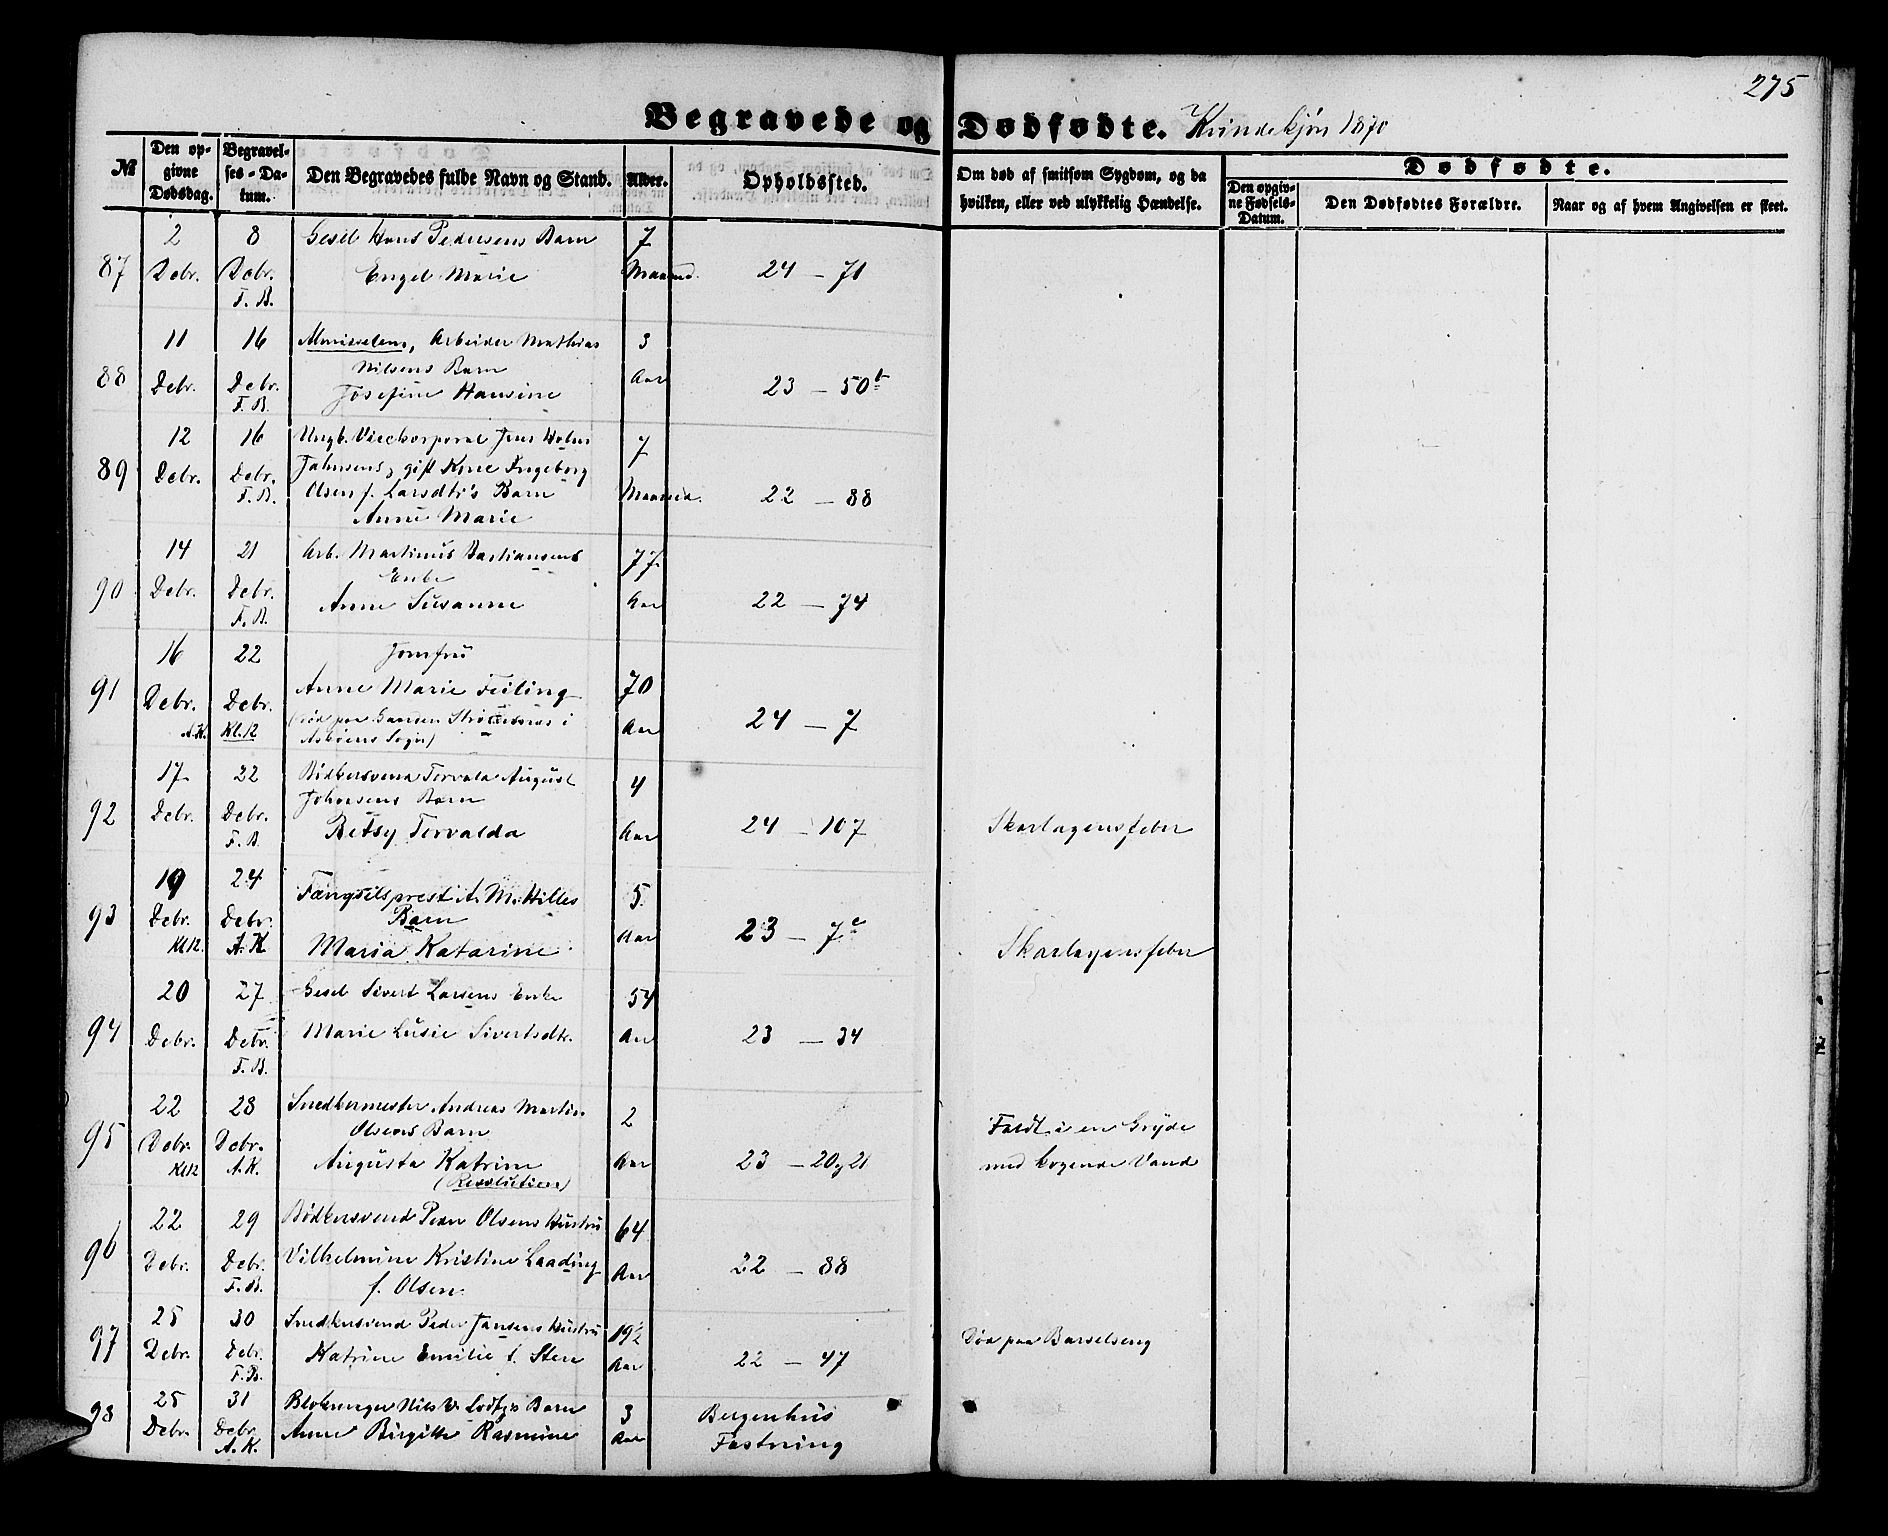 275
Begravede og Dødfødte. Kvindekjøn 1870
№
Den opgivne Dødsdag.
Begravelses-Datum.
Den Begravedes fulde Navn og Stand.
Alder.
Opholdssted.
Om død af smitsom Sygdom, og da hvilken, eller ved ulykkelig Hændelse.
Dødfødte.
Den opgivne Fødsels-Datum.
Den Dødfødtes Forældre.
Naar og af hvem Angivelsen er skeet.
87 2 Debr. 8 Debr. F. B.
Gesel Hans Pedersens Barn
Engel Marie
7 Maaned. 24 – 71
88 11 Debr. 16 Debr. F. B.
Arbeider Mathias
Nilsens Barn
Josefine Hansine
3 Aar 23 – 50b
89 12 Debr. 16 Debr. F. B.
Ungk. Vicekorporal Jens Holm
Johnsens, gift Kone Ingeborg
Olsen f. Larsdtr's Barn
Anne Marie
7 Maaned. 22 – 88
90 14 Debr. 21 Debr. F. B.
Arb. Martinus Bastiansens
Enke
Anne Susanne
77 Aar 22 – 74
91 16 Debr. A.K. 22 Debr. Kl. 12
Jomfru
Anne Marie Feiling
(død paa Gaarden i
Askøens Sogn)
70 Aar 24 – 7
92 17 Debr. 22 Debr. F. B.
Bødkersvend Torvald August
Johnsens Barn
Betsy Torvalda
4 Aar 24 – 107
Skarlagensfeber
93 19 Debr. Kl 12. 24 Debr. A. K.
Fængselsprest A. M. Hilles
Barn
Maria Katarine
5 Aar 23 – 7c
Skarlagensfeber
94 20 Debr. 27 Debr. F. B.
Gesel Sivert Larsens Enke
Marie Lusie Sivertsdtr.
54 Aar 23 – 34
95 22 Debr. Kl 12 28 Debr. A. K.
Snedkermester Andreas Martin
Olsens Barn
Augusta Katrine
(Resolution)
2 Aar 23 – 20 og 21
Faldt i en Gryde
med kogende Vand
96 22 Debr. 29 Debr. F. B.
Bødkersvend Peder Olsens Hustru
Vilhelmine Kristine Laading
f. Olsen.
64 Aar 22 – 88
97 25 Debr. 30 Debr. F. B.
Snedkersvend Peder Jansens Hustru
Katrine Emilie f. Sten
19½ Aar 22 – 47
Død paa Barselseng
98 25 Debr. 31 Debr. A. K.
Nils Barn
Anne Birgitte Rasmine
3 Aar
Bergenhus
Fæstning